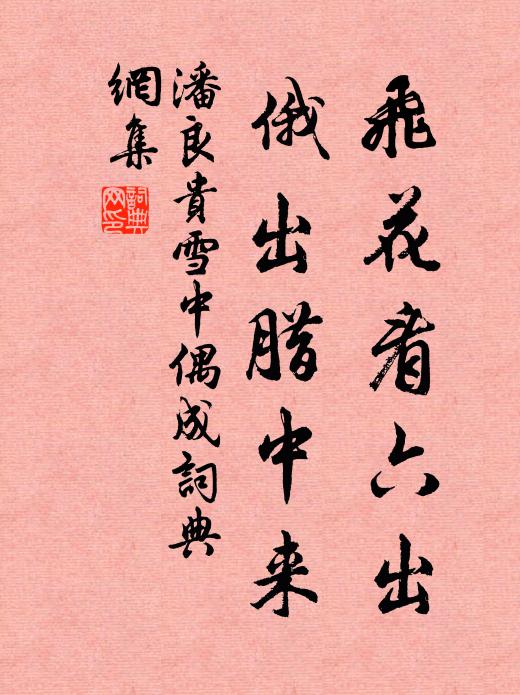 飛花看六出
俄出腊中来
潘良貴雪中偶成詞典
網集
詞典
网印